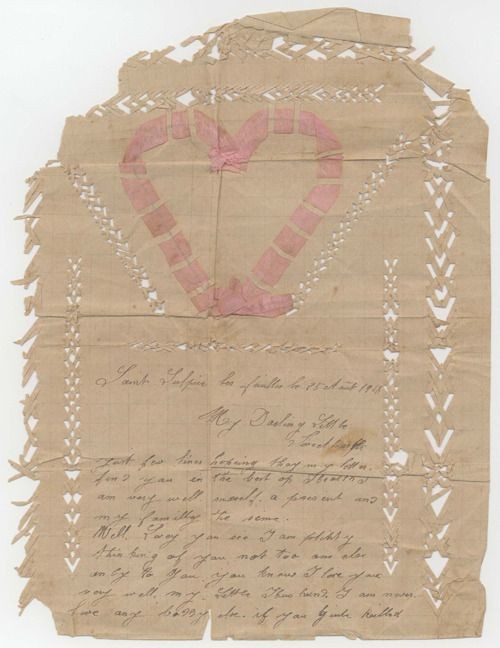 Saint Sulpice les feuilles le 25 Août 1918
My Darling Little
Sweetheart
Just few lines hopeing thay my letter
find you in the best of
am very well myself, a present and
my familly the same.
Well. you see I am
thinking of you not too ans else
only to you, you know I love you
very well my little I am never
love any boddy else. if you